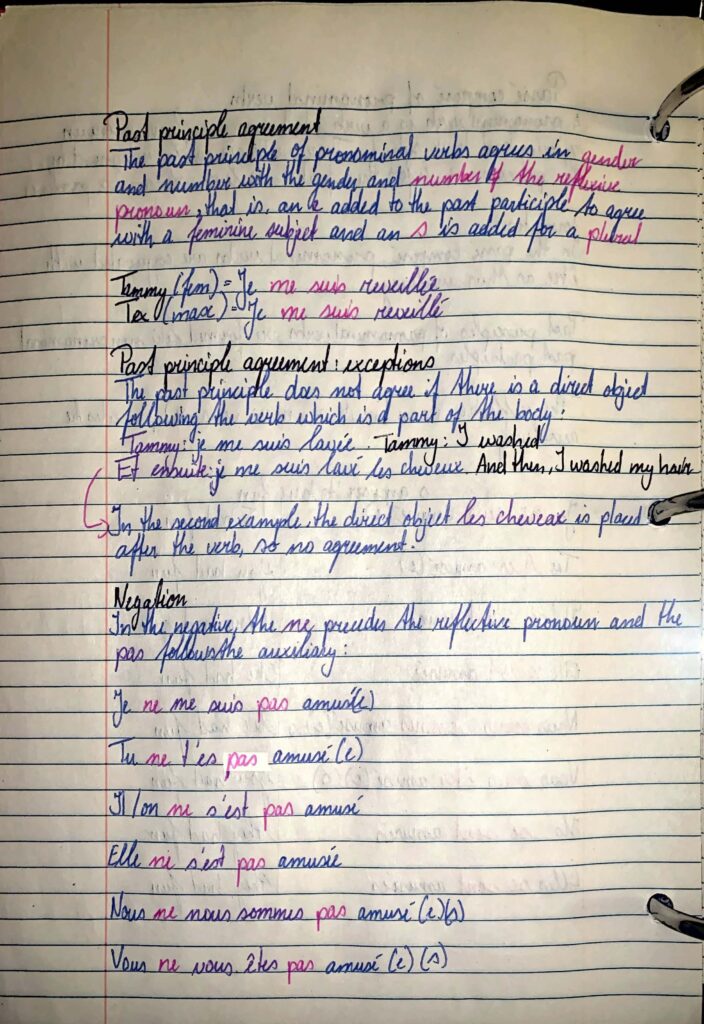 Past principle agreement
The past principle of pronominal verbs agrees in gender
and number with the gender and number of the reflexive
pronoun, that is, an e added to the past participle to agree
with a feminine subject and an s is added for a plural
Tammy (fem) = Je me suis reveillée
Tex (masc) = Je me suis reveillé
Past principle agreement: exceptions
The past principle does not agree if there is a direct object
following the verb which is a part of the body:
Tammy: je me suis lavée. Tammy: I washed
Et ensuite: je me suis lavé les cheveux. And then, I washed my hair
In the second example, the direct object les cheveux is placed
after the verb, so no agreement.
Negation
In the negative, the ne precedes the reflective pronoun and the
pas follows the auxiliary:
Je ne me suis pas amusé(e)
Tu ne t'es pas amusé (e)
Il/on ne s'est pas amusé
Elle ne s'est pas amusée
Nous ne nous sommes pas amusé (e)(s)
Vous ne vous êtes pas amusé (e) (s)